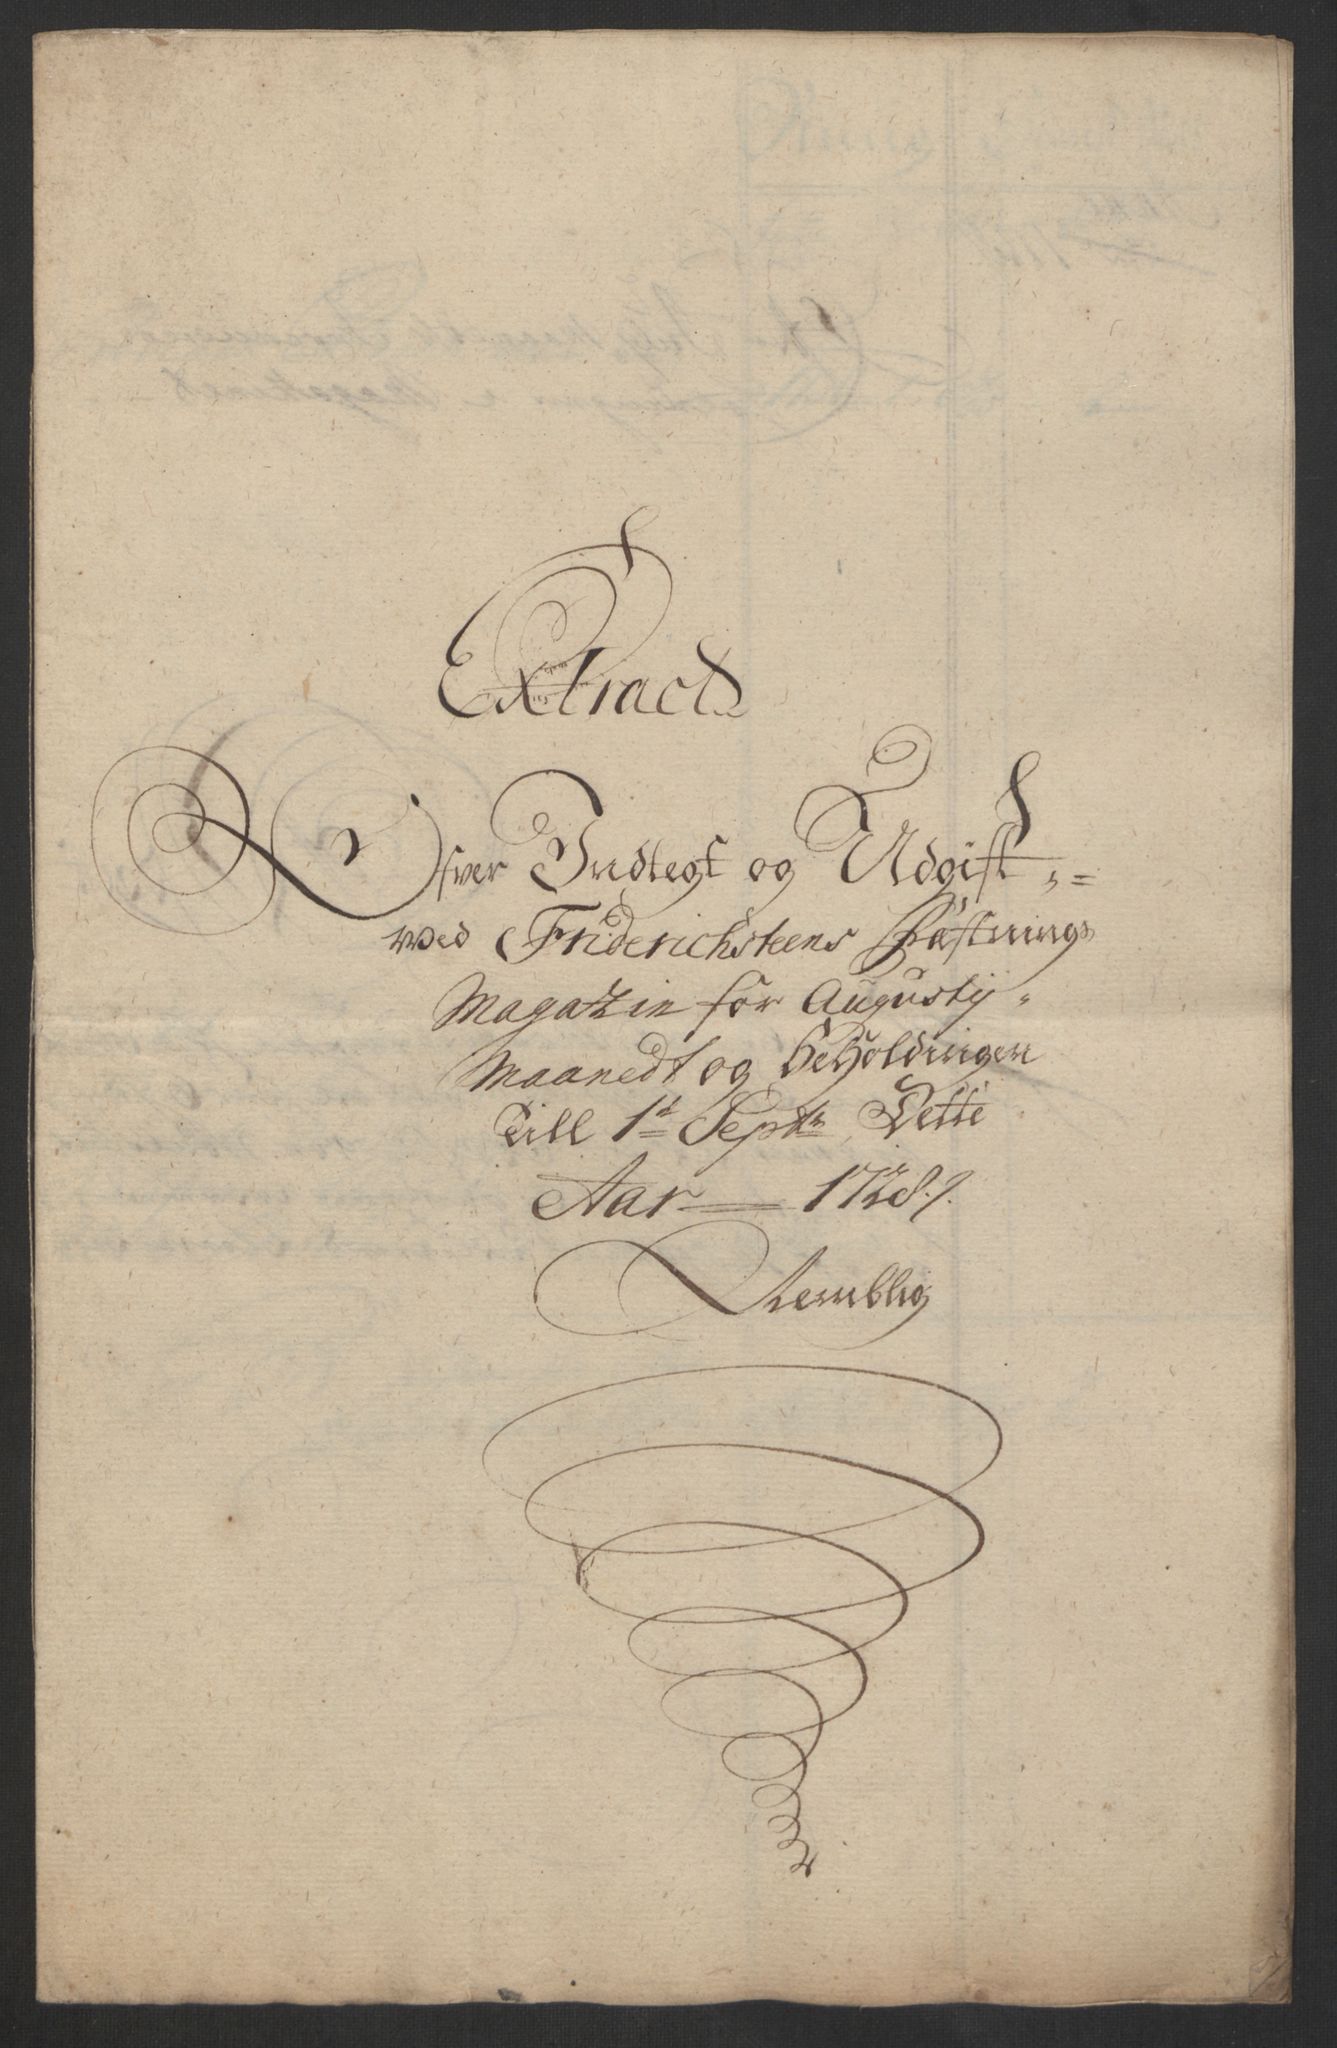 Extract
Ofver Indtegt og Udgift
wed Friderichsteens Fæstnings
Magazin for Augusty
Maanedt og beholdningen
till 1d Septbr Dette
Aar 1728.
Nemblig